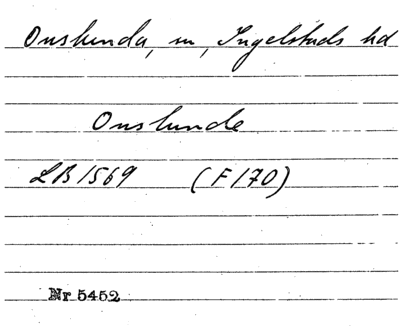 Onslunda, sn, Ingelstads hd
Onslunde
LB 1569 (F 170)
Nr 5452